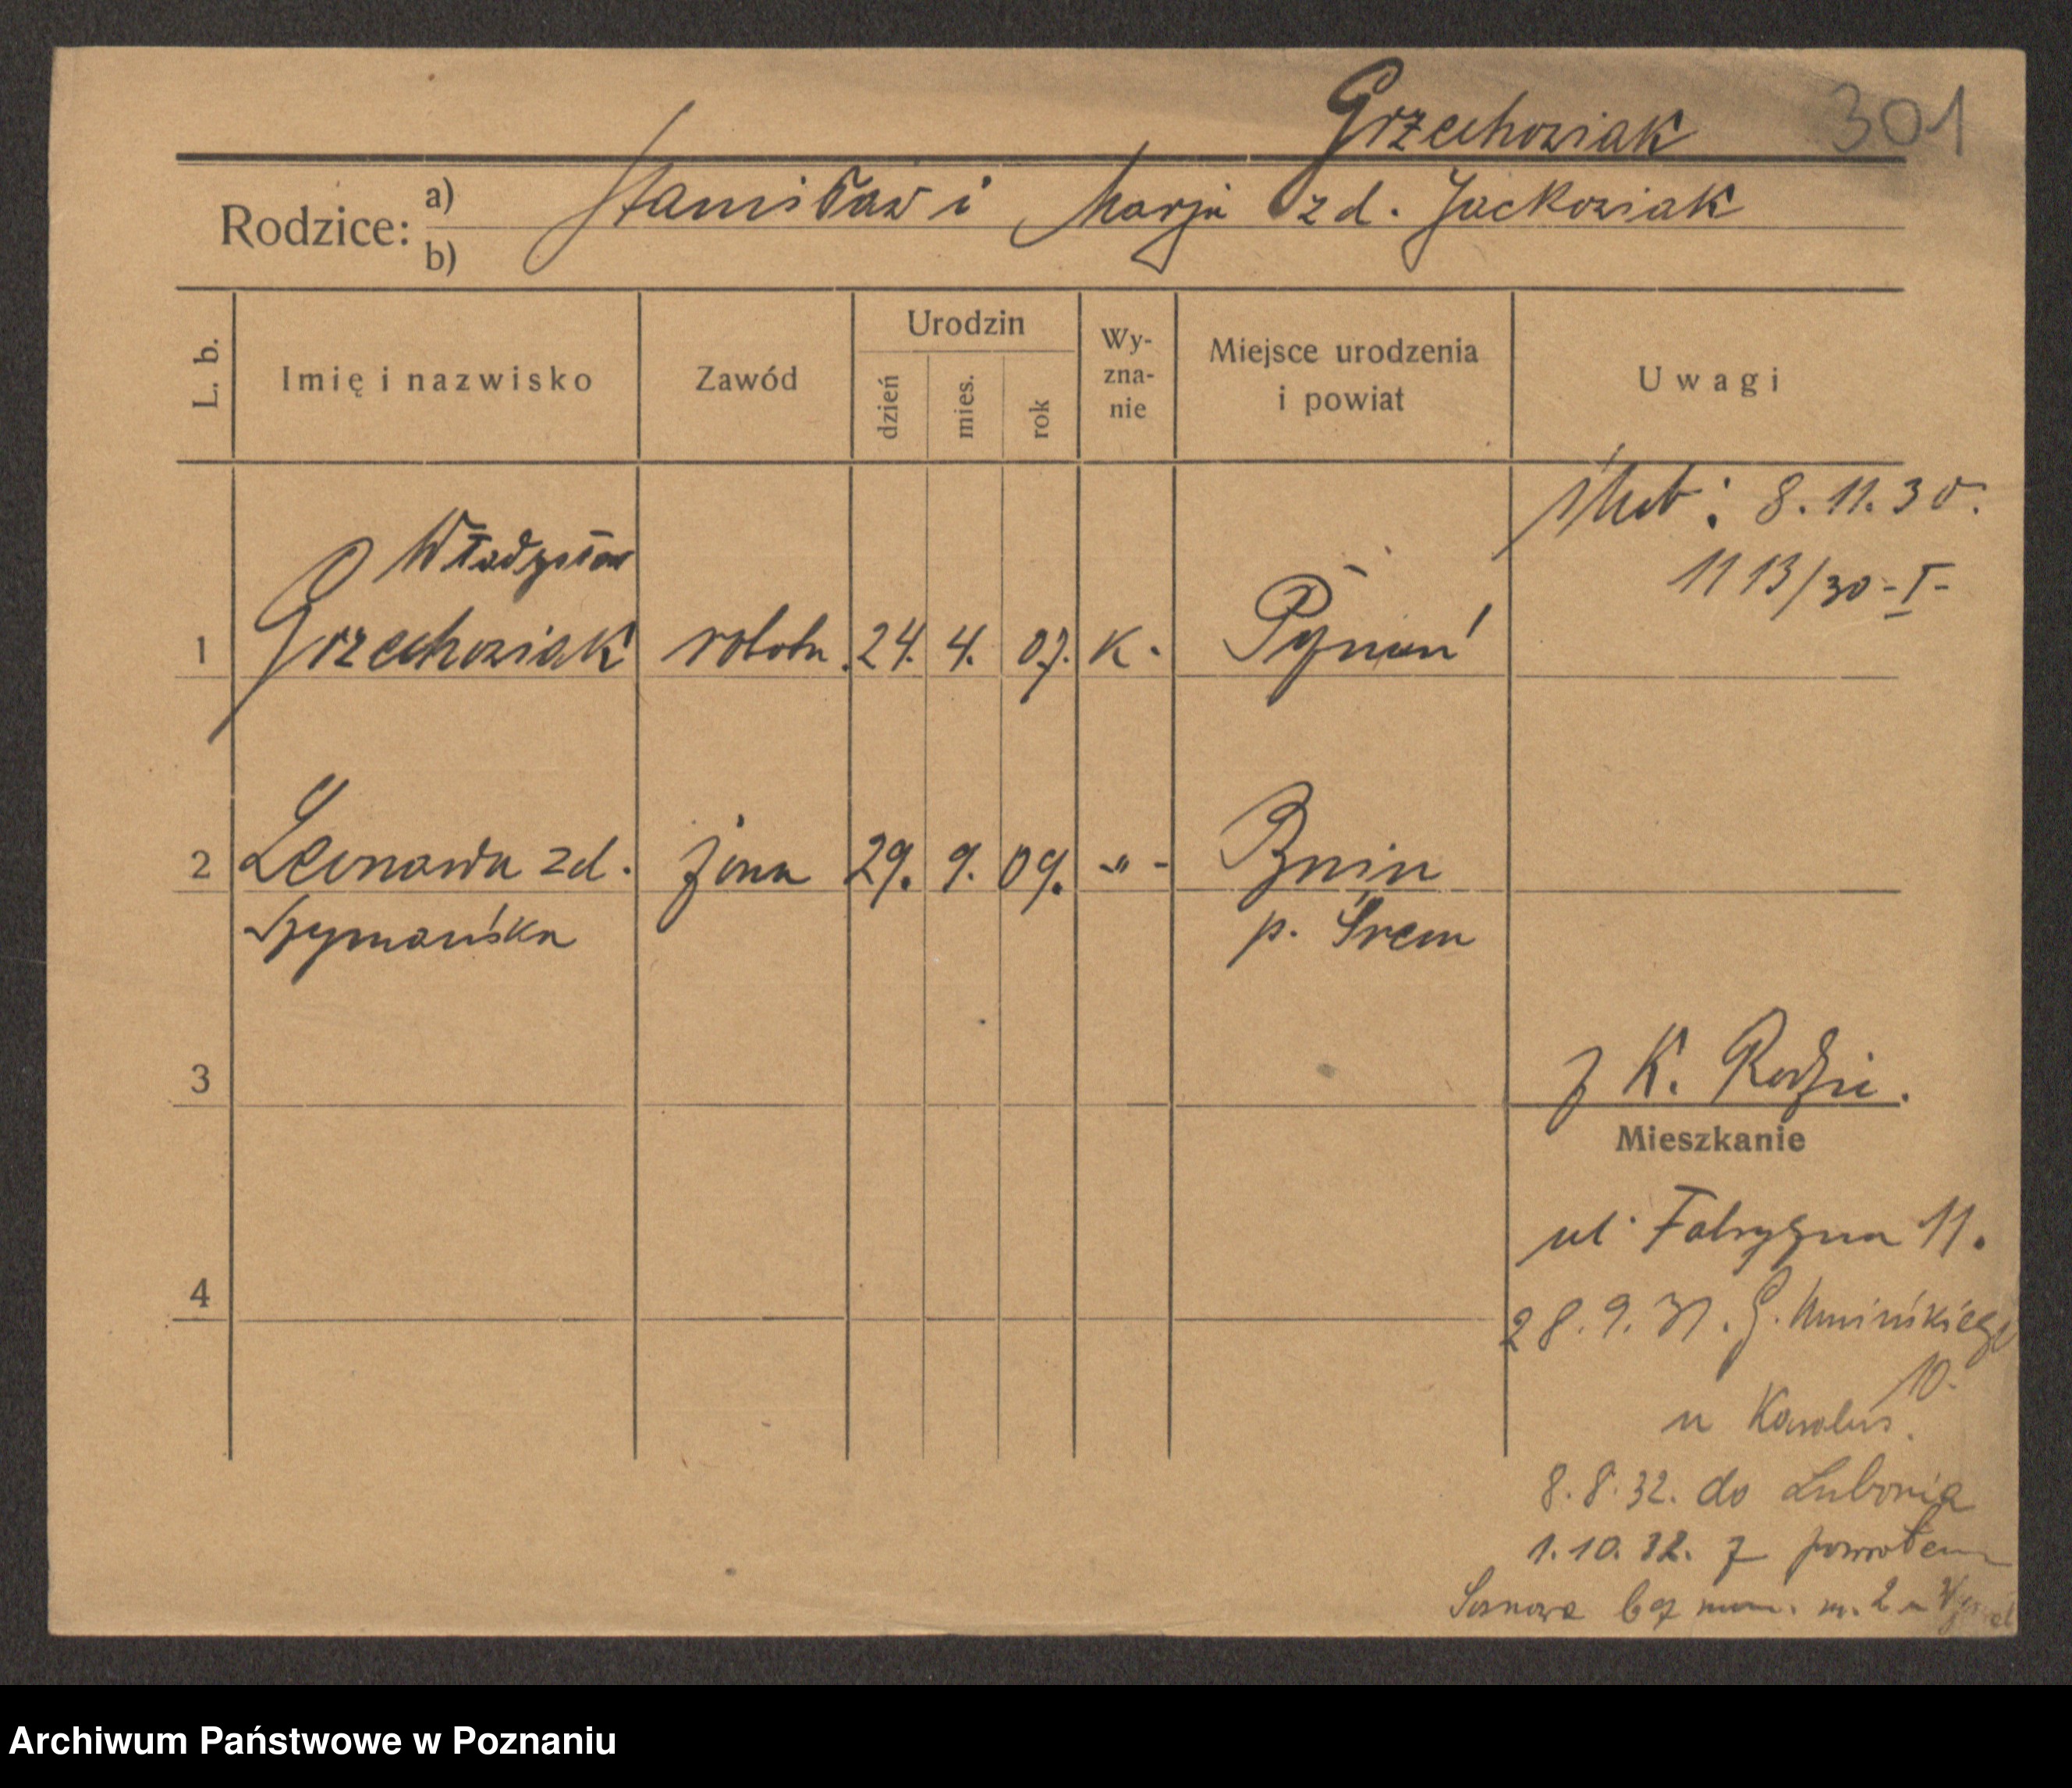 Grzechowiak 301
Rodzice: a) Stanisław i Marja z d. Jackowiak
b)
L. b. Imię i nazwisko Zawód Urodzin dzień mies. rok Wy-zna-nie Miejsce urodzenia i powiat Uwagi
ślub: 8.11.30.
1113/30-I-
Władysław
1 Grzechowiak robotn. 24. 4. 07. K. Poznań
2 Leonarda zd. żona 29. 9. 09. -"- Bnin
Szymańska p. Śrem
3 z K. Rodzic.
Mieszkanie
ul. Fabryczna 11.
4
28.9.31. G. Umińskiego
10.
u Karolus.
8.8.32. do Lubonia
1.10.32. z powrotem
Sosnowa bez num. m. 2 u
Archiwum Państwowe w Poznaniu